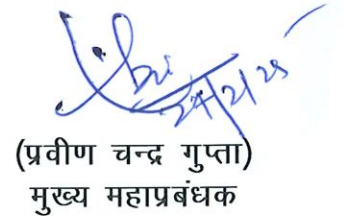 27/2/25
(प्रवीण चन्द्र गुप्ता)
मुख्य महाप्रबंधक